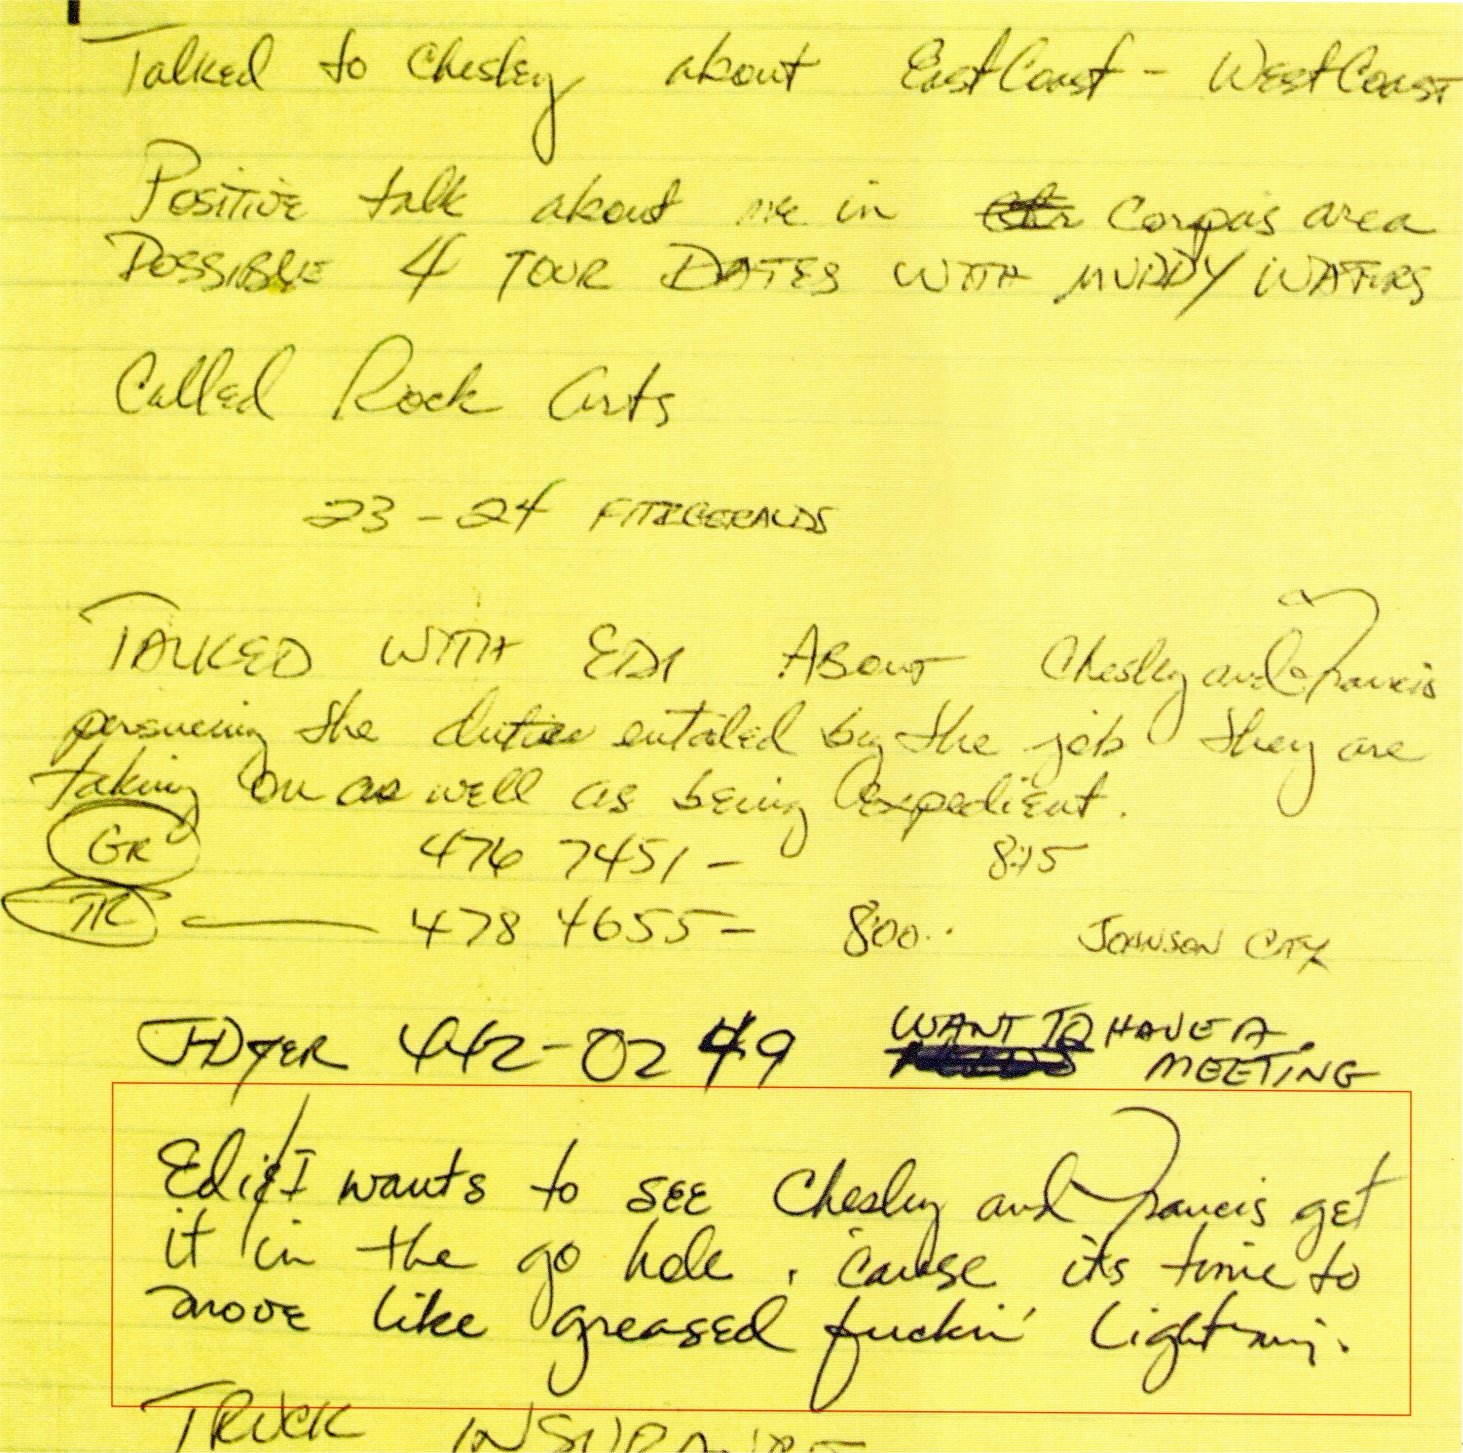 Talked to Chesley about East Coast - West Coast
Positive talk about me in Corpus area
POSSIBLE 4 TOUR DATES WITH MUDDY WATERS
Called Rock Arts
23 - 24 FITZGERALDS
TALKED WITH EDI ABOUT Chesley and Francis
persueing the duties entailed by the job they are
taking on as well as being expedient.
GR 476 7451 - 8:15
TR — 478 4655 - 8:00.. JOHNSON CITY
J-DYER 442-0249 WANT TO HAVE A
MEETING
Edi & I wants to SEE Chesley and Francis get
it in the go hole. 'cause its time to
move like greased fuckin' lightning.
TRUCK INSURANCE